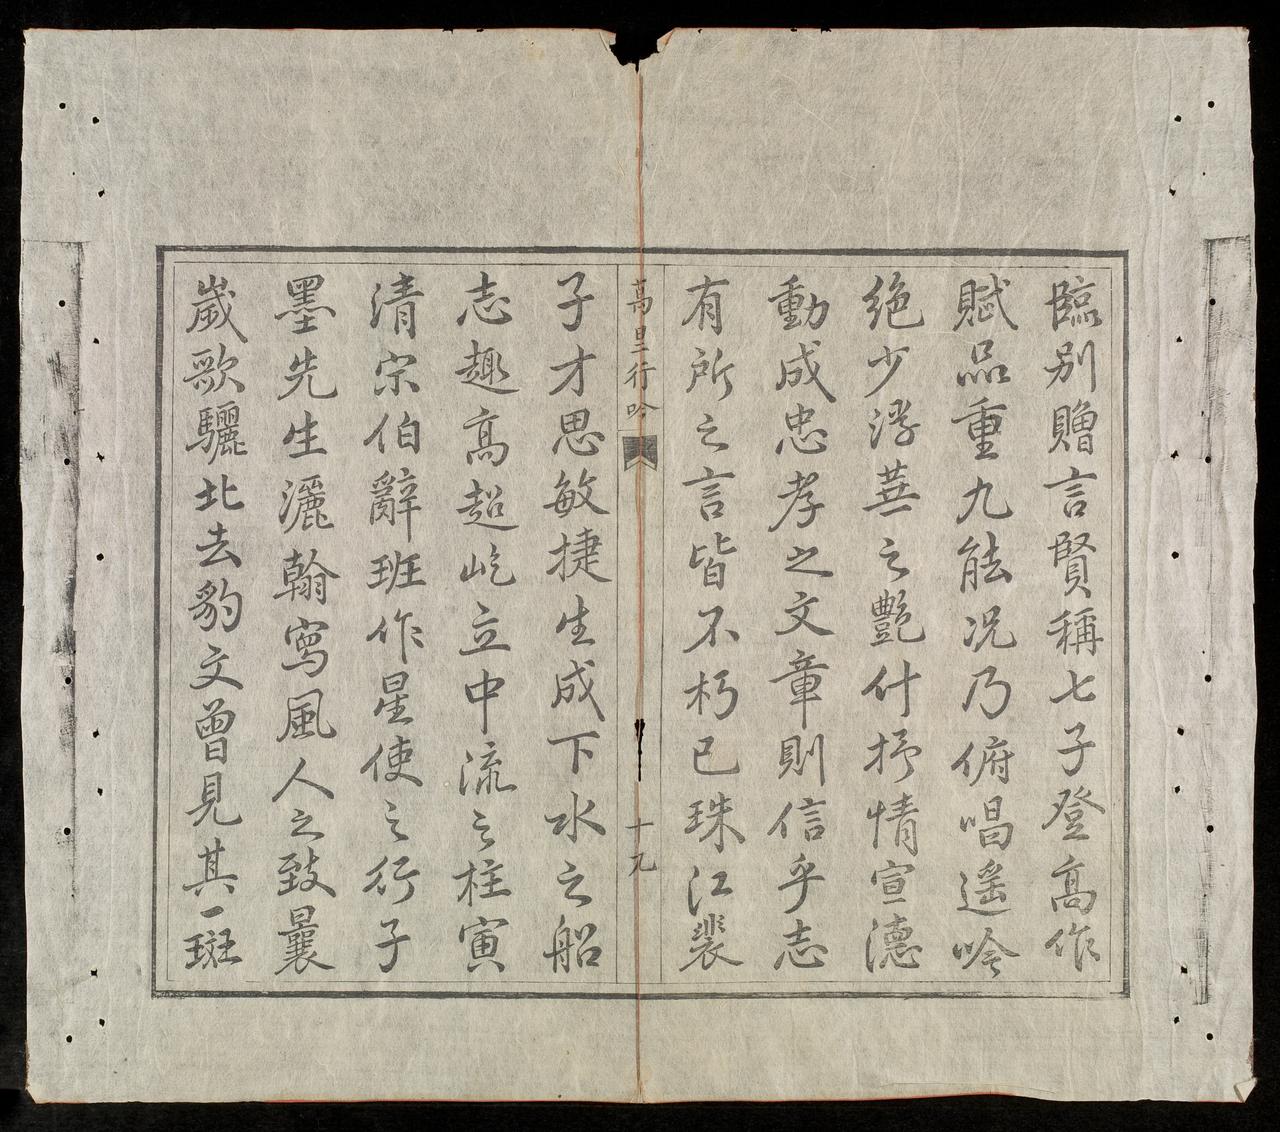 臨别贈言賢稱七子登髙作
賦品重九能况乃俯唱遥吟
绝少浮蕪之艷什抒情宣德
動成忠孝之文章則信乎志
有所之言皆不朽已珠江裴
萬里行吟
十九
子才思敏捷生成下水之船
志趣髙超屹立中流之柱寅
清宗伯辭班作星使之行子
墨先生灑翰寫風人之致曩
歲歌驪北去豹文曾見其一斑